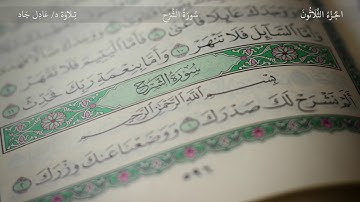 الجُزْءُ الثَّلَاثُونَ
سُورَةُ الشَّرْحِ
تِلَاوَة د/ عَادِل جَاد
فَلَا تَنْهَرْ
وَأَمَّا السَّآئِلَ فَلَا تَنْهَرْ ۝ وَأَمَّا بِنِعْمَةِ رَبِّكَ فَحَدِّثْ ۝
سُورَةُ الشَّرْحِ
بِسْمِ اللَّهِ الرَّحْمَٰنِ الرَّحِيمِ
أَلَمْ نَشْرَحْ لَكَ صَدْرَكَ ۝ وَوَضَعْنَا عَنكَ وِزْرَكَ ۝
٥٩٦